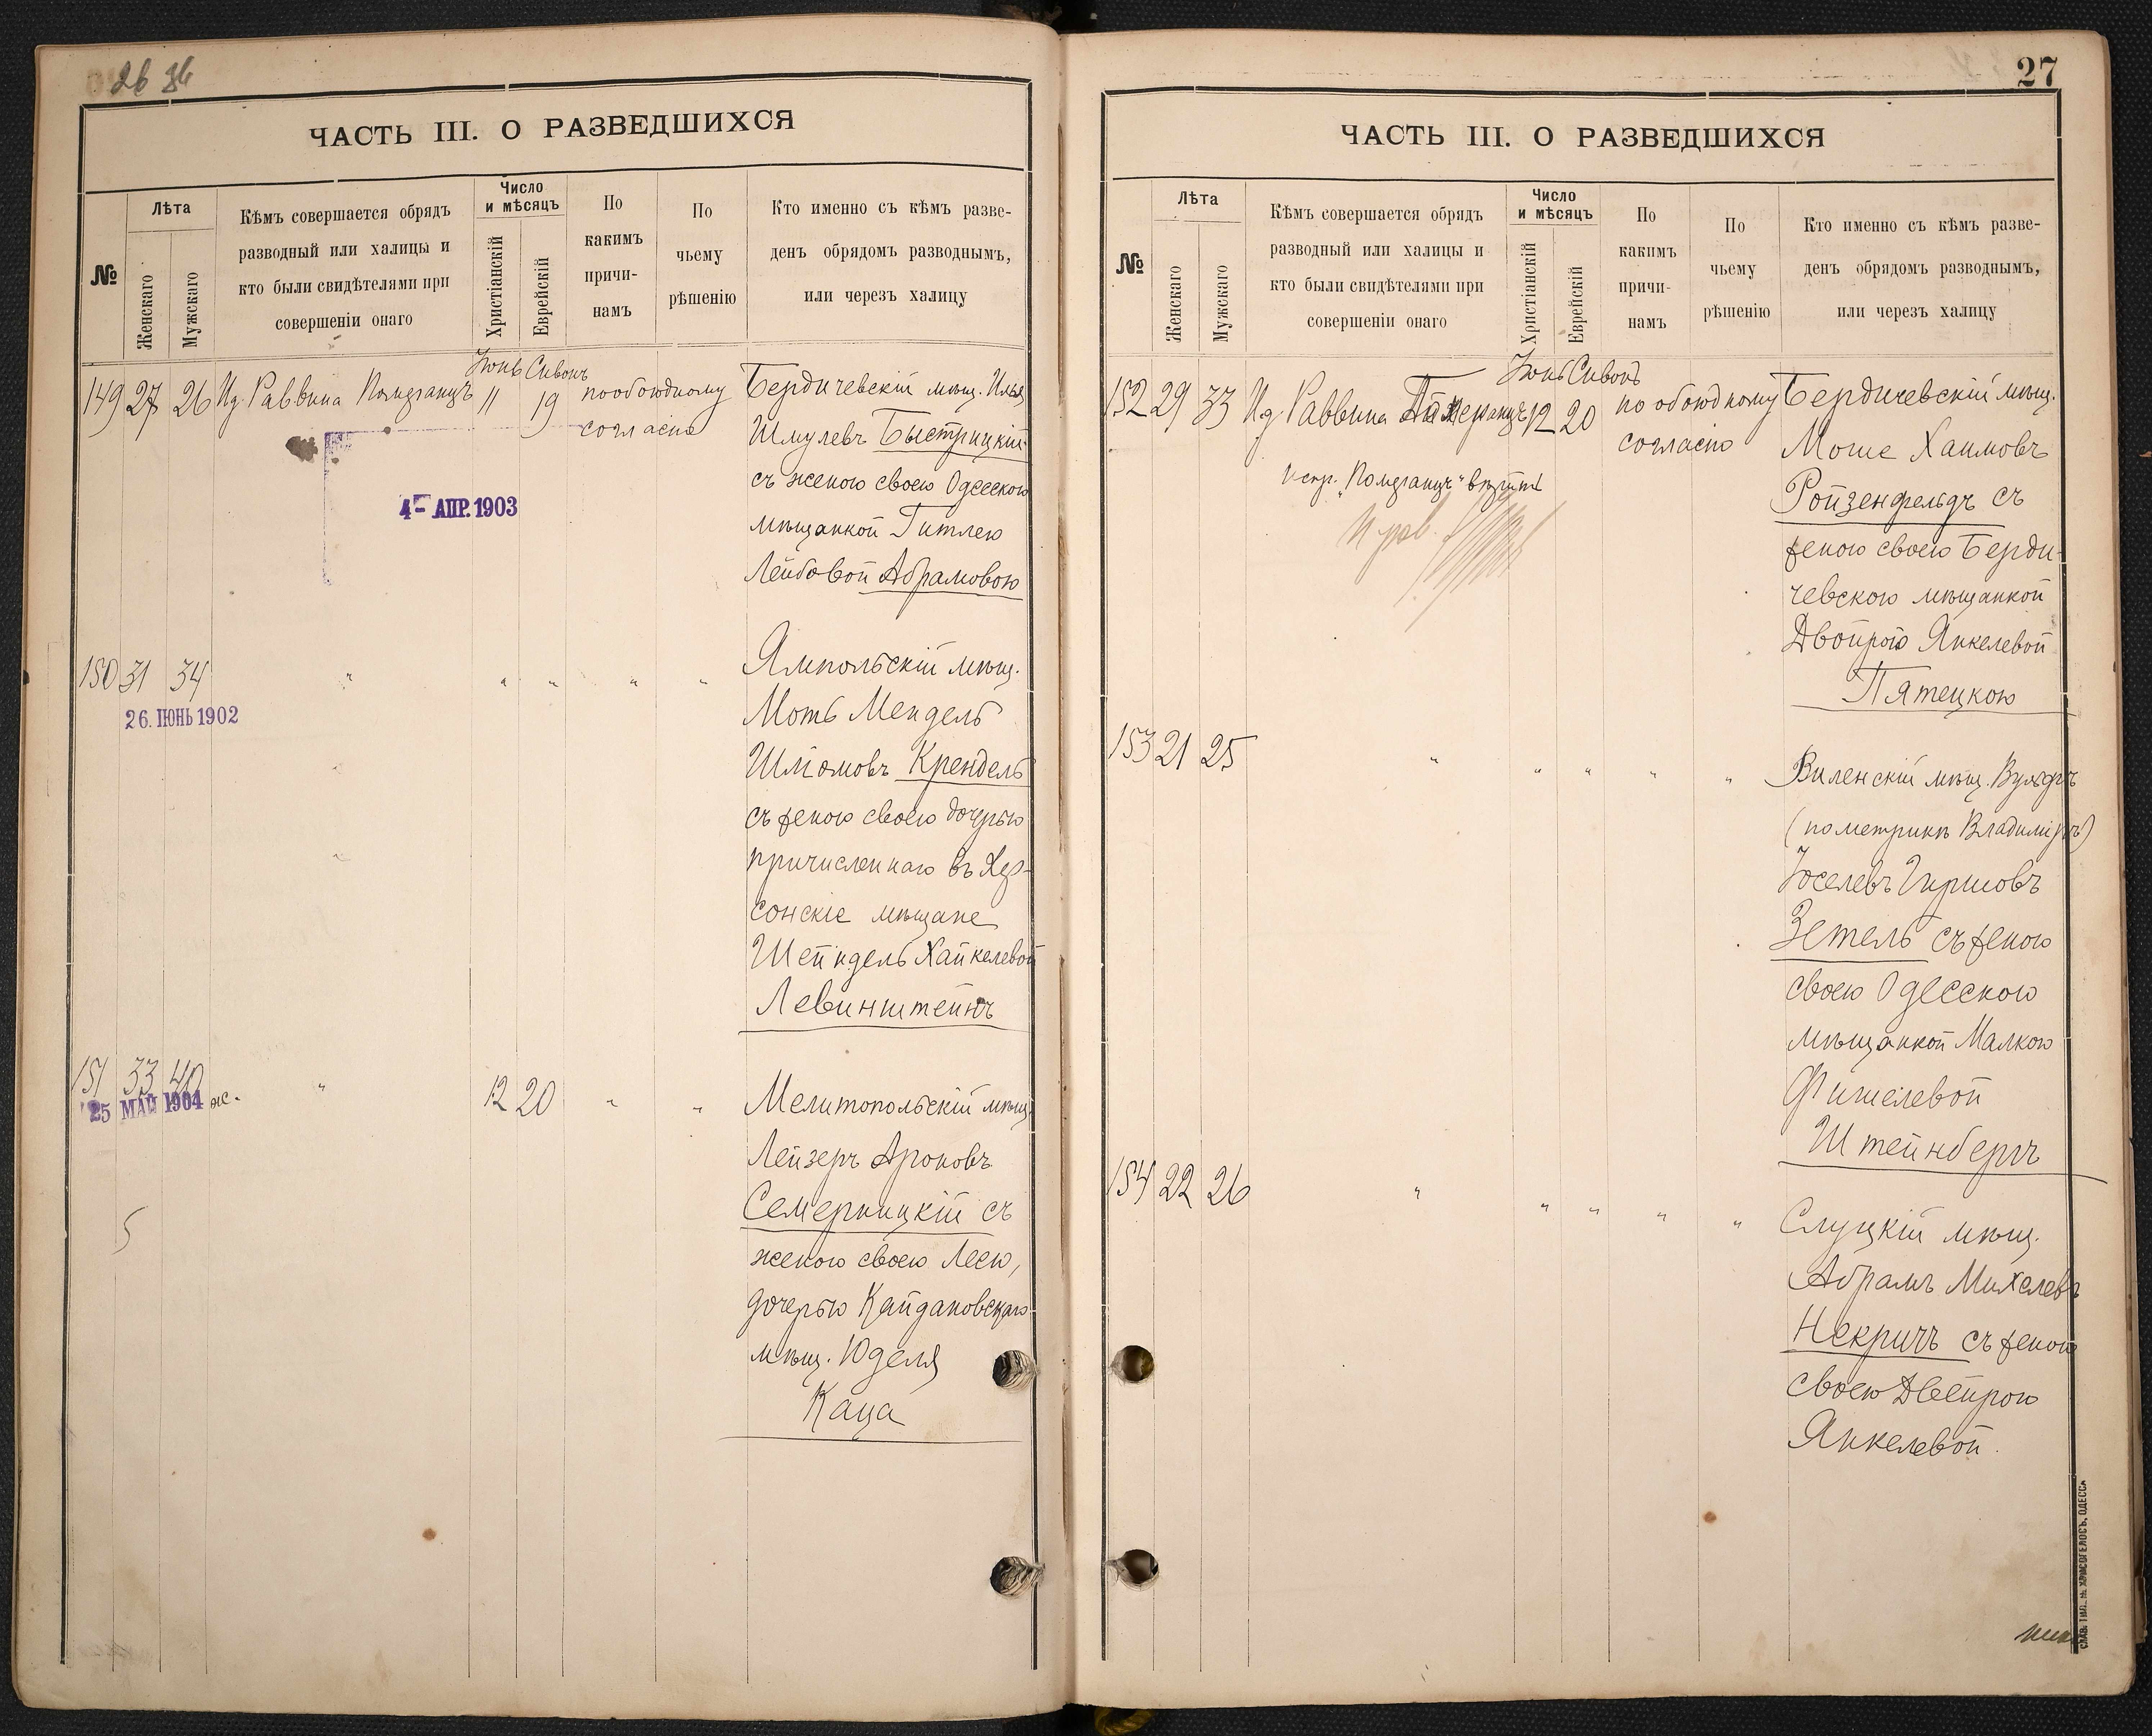 26
ЧАСТЬ III. О РАЗВЕДШИХСЯ
№
Лѣта
Женскаго
Мужскаго
Кѣмъ совершается обрядъ
разводный или халицы и
кто были свидѣтелями при
совершеніи онаго
Число
и мѣсяцъ
Христіанскій
Еврейскій
По
какимъ
причи-
намъ
По
чьему
рѣшенію
Кто именно съ кѣмъ разве-
денъ обрядомъ разводнымъ,
или черезъ халицу
Іюнь Сивонъ
149 27 26 Ид. Раввина Померанцъ 11 19 по обоюдному
согласію
Бердичевскій мѣщ. Илья
Шмулевъ Быстрицкій
съ женою своею Одесскою
мѣщанкой Гитлею
Лейбовой Абрамовою
4- АПР. 1903
150 31 34 " " " " "
26. ІЮНЬ 1902
Ямпольскій мѣщ.
Моть Мендель
Шлiомовъ Крендель
съ женою своею дочерью
причисленнаго въ Хер-
сонскіе мѣщане
Шейндель Хайкелевой
Левинштейнъ
151 33 40 " 12 20 " "
25 МАЙ 1904 ж.
Мелитопольскій мѣщ.
Лейзеръ Ароновъ
Семерницкій съ
женою своею Леею,
дочерью Кайдановскаго
мѣщ. Юделя
Каца
27
ЧАСТЬ III. О РАЗВЕДШИХСЯ
№
Лѣта
Женскаго
Мужскаго
Кѣмъ совершается обрядъ
разводный или халицы и
кто были свидѣтелями при
совершеніи онаго
Число
и мѣсяцъ
Христіанскій
Еврейскій
По
какимъ
причи-
намъ
По
чьему
рѣшенію
Кто именно съ кѣмъ разве-
денъ обрядомъ разводнымъ,
или черезъ халицу
Іюнь Сивонъ
152 29 33 Ид. Раввина Померанцъ 12 20 по обоюдному
согласію
испр. "Померанцъ" вѣрить
Бердичевскій мѣщ.
Моше Хаимовъ
Ройзенфельдъ съ
женою своею Берди-
чевскою мѣщанкой
Двойрою Янкелевой
Пятецкою
153 21 25 " " " " "
Виленскій мѣщ. Вульфъ
(по метрикѣ Владиміръ)
Іоселевъ Гиршовъ
Зетель съ женою
своею Одесскою
мѣщанкой Малкою
Фишелевой
Штейнбергъ
154 22 26 " " " " "
Слуцкій мѣщ.
Абрамъ Михелевъ
Некричъ съ женою
своею Двейрою
Янкелевой.
СЛАВ. ТИП. Н. ХРИСОГЕЛОСЪ, ОДЕССА